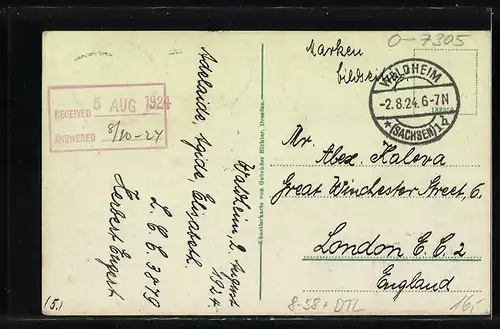 O-7305
Marken
bildseitig
WALDHEIM
-2.8.24.6-7N
*(SACHSEN)1b
RECEIVED 5 AUG 1924
ANSWERED 8/10-24
Waldheim 2. August
1924.
Adelaide, Gjöe, Elisabeth.
L. C. C. 3079
Herbert Engert
Künstlerkarte von Gebrüder Richter, Dresden.
Mr.
Alex. Kalova
Great Winchester Street, 6
London E. C. 2
England
8-58+DTL
16,-
(5)